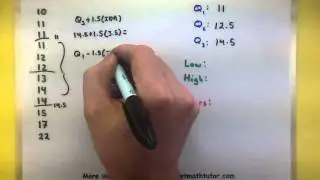 10
11
11
11 11
12
12
13
14
14 14.5
15
17
22
Q₃ + 1.5(IQR)
14.5 + 1.5(3.5) =
Q₁ - 1.5(
Q₁: 11
Q₂: 12.5
Q₃: 14.5
Low:
High:
rs:
More
tmathtutor.com